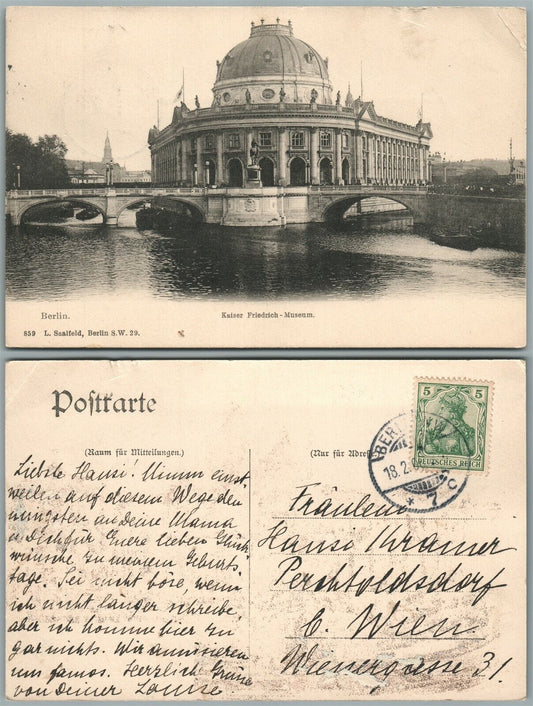 Berlin.
Kaiser Friedrich-Museum.
859 L. Saalfeld, Berlin S.W. 29.
Postkarte
(Raum für Mitteilungen.)
(Nur für Adresse
Liebste Hansi! Nimm einst
weilen auf diesem Wege den
innigsten an deine Mama
u. Dich für Eure lieben Glück
wünsche zu meinem Geburts
tage. Sei nicht böse, wenn
ich nicht länger schreibe,
aber ich komme hier zu
gar nichts. Wir amüsieren
uns famos. Herzlich Grüsse
von deiner Louise
5 5
DEUTSCHES REICH
BERLIN
18.2.
* 7 c
Fräulein
Hansi Kramer
Perchtoldsdorf
b. Wien
Wienergasse 31.